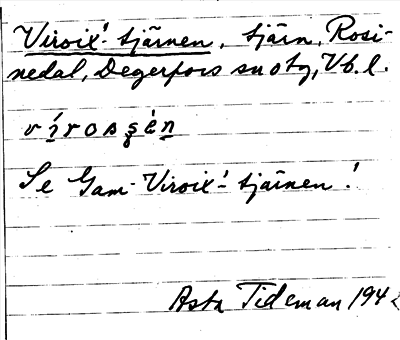 Viroix'-tjärnen, tjärn, Rosi-
nedal, Degerfors sn o tg, Vb. l.
vírosşèn
Se Gam-Viroix'-tjärnen!
Asta Tideman 194